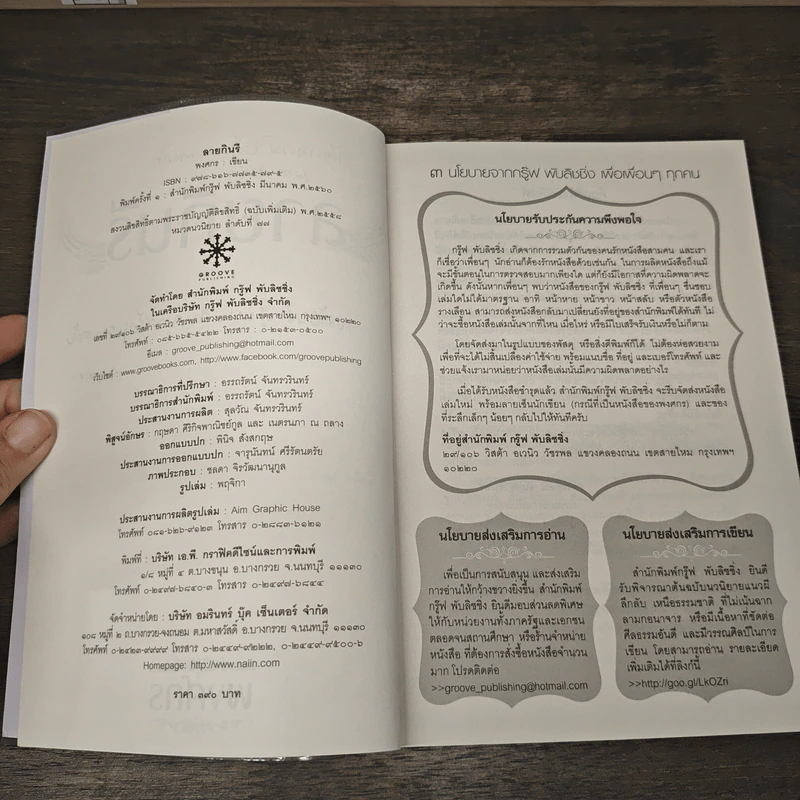 ลายกินรี
พงศกร : เขียน
ISBN : ๙๗๘-๖๑๖-๗๗๓๕-๗๙-๕
พิมพ์ครั้งที่ ๑ : สำนักพิมพ์กรู๊ฟ พับลิชชิ่ง มีนาคม พ.ศ.๒๕๖๐
สงวนลิขสิทธิ์ตามพระราชบัญญัติลิขสิทธิ์ (ฉบับเพิ่มเติม) พ.ศ.๒๕๕๘
หมวดนวนิยาย ลำดับที่ ๗๗
GROOVE
PUBLISHING
จัดทำโดย สำนักพิมพ์ กรู๊ฟ พับลิชชิ่ง
ในเครือบริษัท กรู๊ฟ พับลิชชิ่ง จำกัด
เลขที่ ๒๙/๑๐๖ วิสต้า อเวนิว วัชรพล แขวงคลองถนน เขตสายไหม กรุงเทพฯ ๑๐๒๒๐
โทรศัพท์ : ๐๘๕-๖๖๕-๕๔๒๒ โทรสาร : ๐-๒๑๕๓-๐๕๐๐
อีเมล : groove_publishing@hotmail.com
เว็บไซต์ : www.groovebooks.com, http://www.facebook.com/groovepublishing
บรรณาธิการที่ปรึกษา : อรรถรัตน์ จันทรวรินทร์
บรรณาธิการสำนักพิมพ์ : อรรถรัตน์ จันทรวรินทร์
ประสานงานการผลิต : สุลวัณ จันทรวรินทร์
พิสูจน์อักษร : กฤษดา ศิริกิจพาณิชย์กูล และ เนตรนภา ณ ถลาง
ออกแบบปก : พินิจ สังสกฤษ
ประสานงานการออกแบบปก : จารุนันทน์ ศรีรัตนตรัย
ภาพประกอบ : ชลดา จิรวัฒนานุกูล
รูปเล่ม : พฤจิกา
ประสานงานการผลิตรูปเล่ม : Aim Graphic House
โทรศัพท์ ๐๘๑-๖๒๖-๙๑๒๓ โทรสาร ๐-๒๘๘๓-๖๑๒๑
พิมพ์ที่ : บริษัท เอ.พี. กราฟิคดีไซน์และการพิมพ์
๑/๘ หมู่ที่ ๔ ต.บางขนุน อ.บางกรวย จ.นนทบุรี ๑๑๑๓๐
โทรศัพท์ ๐-๒๔๙๗-๖๘๔๐-๓ โทรสาร ๐-๒๔๙๗-๖๘๔๔
จัดจำหน่ายโดย : บริษัท อมรินทร์ บุ๊ค เซ็นเตอร์ จำกัด
๑๐๘ หมู่ที่ ๒ ถ.บางกรวย-จงถนอม ต.มหาสวัสดิ์ อ.บางกรวย จ.นนทบุรี ๑๑๑๓๐
โทรศัพท์ ๐-๒๔๒๓-๙๙๙๙ โทรสาร ๐-๒๔๔๙-๙๒๒๒, ๐-๒๔๔๙-๙๕๐๐-๖
Homepage: http://www.naiin.com
ราคา ๓๙๐ บาท
๓ นโยบายจากกรู๊ฟ พับลิชชิ่ง เพื่อเพื่อนๆ ทุกคน
นโยบายรับประกันความพึงพอใจ
กรู๊ฟ พับลิชชิ่ง เกิดจากการรวมตัวกันของคนรักหนังสือสามคน และเรา
ก็เชื่อว่าเพื่อนๆ นักอ่านก็ต้องรักหนังสือด้วยเช่นกัน ในการผลิตหนังสือถึงแม้
จะมีขั้นตอนในการตรวจสอบมากเพียงใด แต่ก็ยังมีโอกาสที่ความผิดพลาดจะ
เกิดขึ้น ดังนั้นหากเพื่อนๆ พบว่าหนังสือของกรู๊ฟ พับลิชชิ่ง ที่เพื่อนๆ ชื่นชอบ
เล่มใดไม่ได้มาตรฐาน อาทิ หน้าหาย หน้าขาว หน้าสลับ หรือตัวหนังสือ
รางเลือน สามารถส่งหนังสือกลับมาเปลี่ยนยังที่อยู่ของสำนักพิมพ์ได้ทันที ไม่
ว่าจะซื้อหนังสือเล่มนั้นจากที่ไหน เมื่อไหร่ หรือมีใบเสร็จรับเงินหรือไม่ก็ตาม
โดยจัดส่งมาในรูปแบบของพัสดุ หรือสิ่งตีพิมพ์ก็ได้ ไม่ต้องห่อสวยงาม
เพื่อที่จะได้ไม่สิ้นเปลืองค่าใช้จ่าย พร้อมแนบชื่อ ที่อยู่ และเบอร์โทรศัพท์ และ
ช่วยแจ้งเรามาหน่อยว่าหนังสือเล่มนั้นมีความผิดพลาดอย่างไร
เมื่อได้รับหนังสือชำรุดแล้ว สำนักพิมพ์กรู๊ฟ พับลิชชิ่ง จะรีบจัดส่งหนังสือ
เล่มใหม่ พร้อมลายเซ็นนักเขียน (กรณีที่เป็นหนังสือของพงศกร) และของ
ที่ระลึกเล็กๆ น้อยๆ กลับไปให้ทันทีครับ
ที่อยู่สำนักพิมพ์ กรู๊ฟ พับลิชชิ่ง
๒๙/๑๐๖ วิสต้า อเวนิว วัชรพล แขวงคลองถนน เขตสายไหม กรุงเทพฯ
๑๐๒๒๐
นโยบายส่งเสริมการอ่าน
เพื่อเป็นการสนับสนุน และส่งเสริม
การอ่านให้กว้างขวางยิ่งขึ้น สำนักพิมพ์
กรู๊ฟ พับลิชชิ่ง ยินดีมอบส่วนลดพิเศษ
ให้กับหน่วยงานทั้งภาครัฐและเอกชน
ตลอดจนสถานศึกษา หรือร้านจำหน่าย
หนังสือ ที่ต้องการสั่งซื้อหนังสือจำนวน
มาก โปรดติดต่อ
>>groove_publishing@hotmail.com
นโยบายส่งเสริมการเขียน
สำนักพิมพ์กรู๊ฟ พับลิชชิ่ง ยินดี
รับพิจารณาต้นฉบับนวนิยายแนวผี
ลึกลับ เหนือธรรมชาติ ที่ไม่เน้นฉาก
ลามกอนาจาร หรือมีเนื้อหาที่ขัดต่อ
ศีลธรรมอันดี และมีวรรณศิลป์ในการ
เขียน โดยสามารถอ่าน รายละเอียด
เพิ่มเติมได้ที่ลิงก์นี้
>>http://goo.gl/LkOZri